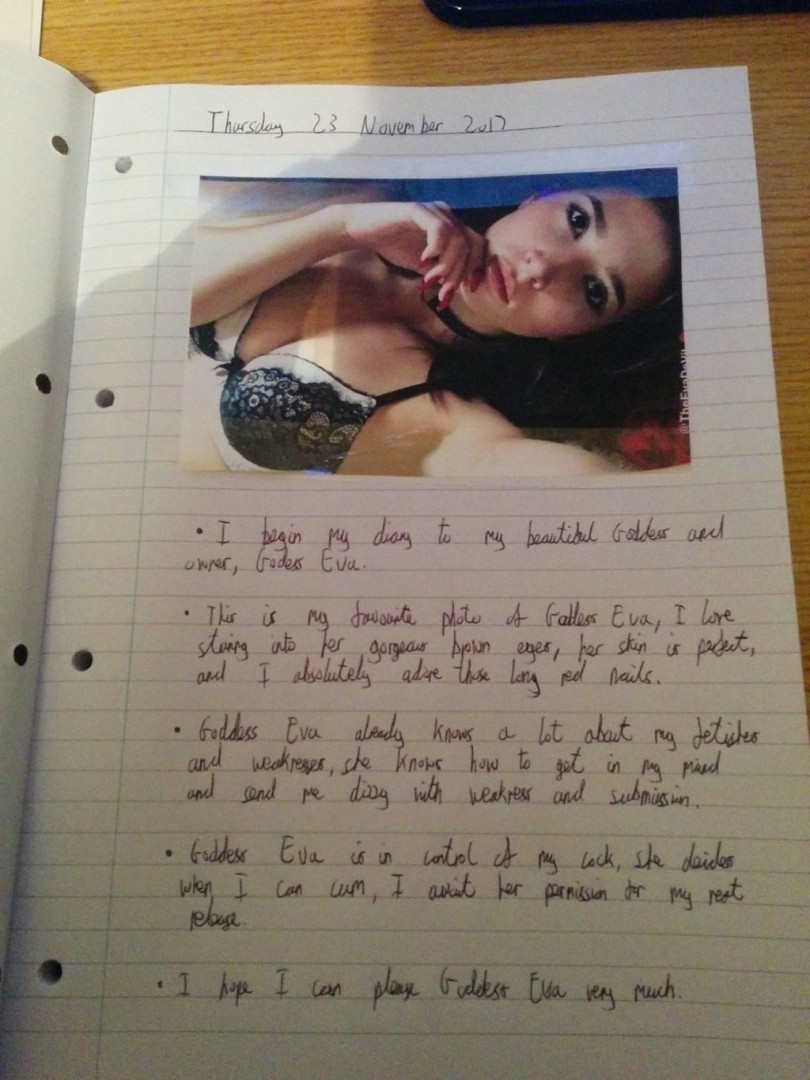 Thursday 23 November 2017
@TheEvaDeVil
• I begin my diary to my beautiful Goddess and
owner, Godess Eva.
• This is my favourite photo of Goddess Eva, I love
staring into her gorgeous brown eyes, her skin is perfect,
and I absolutely adore those long red nails.
• Goddess Eva already knows a lot about my fetishes
and weaknesses, she knows how to get in my mind
and send me dizzy with weakness and submission.
• Goddess Eva is in control of my cock, she decides
when I can cum, I await her permission for my next
release.
• I hope I can please Goddess Eva very much.